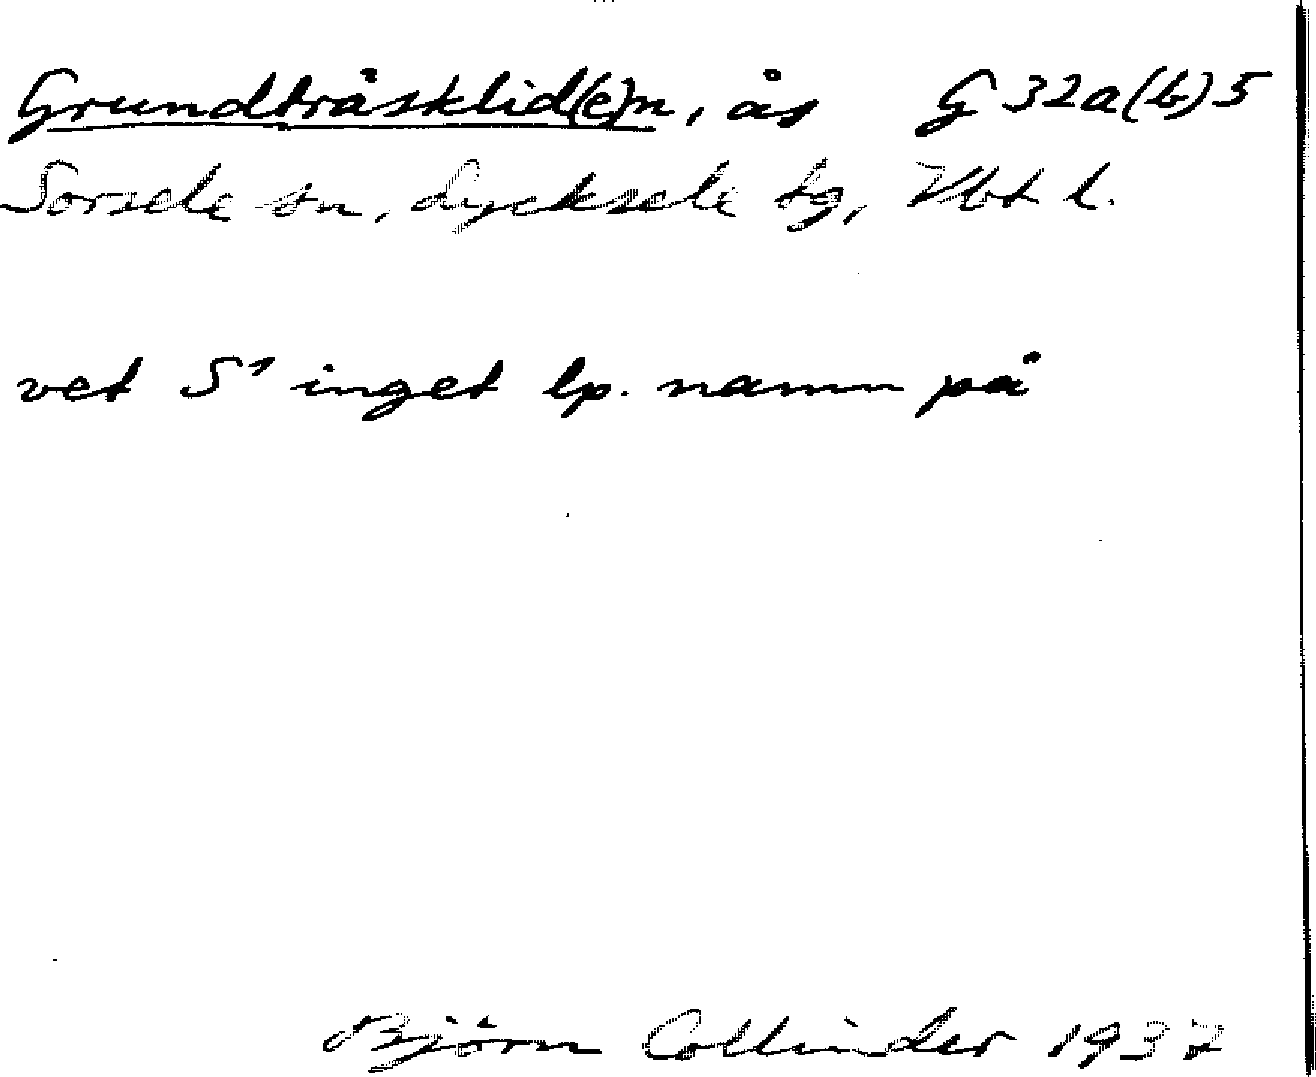 Grundträsklid(e)n, ås G 32a(b)5
Sorsele sn, Lycksele tg, Vbt l.
vet S¹ inget lp. namn på
Björn Collinder 1937